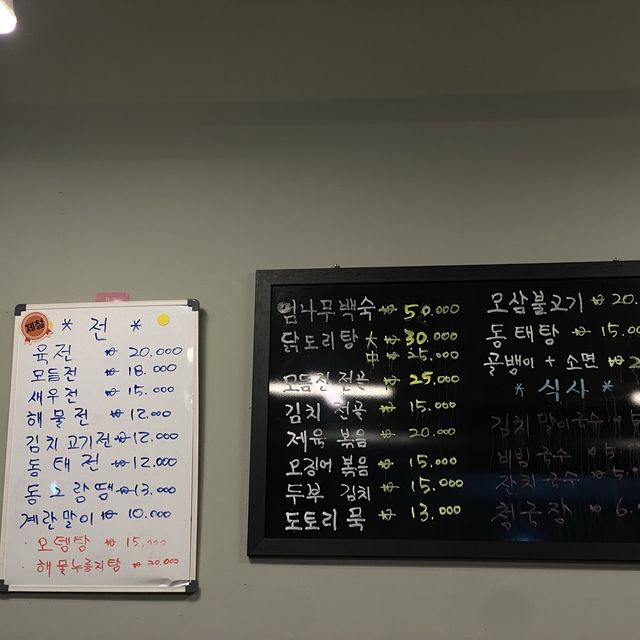 제철
* 전 *
육전 ₩ 20.000
모듬전 ₩ 18.000
새우전 ₩ 15.000
해물전 ₩ 12.000
김치고기전 ₩ 12.000
동태전 ₩ 12.000
동그랑땡 ₩ 13.000
계란말이 ₩ 10.000
· 오뎅탕 ₩ 15.000
· 해물누룽지탕 ₩ 20.000
엄나무백숙 ₩ 50.000
닭도리탕 大 ₩ 30.000
中 ₩ 25.000
모듬전 전골 ₩ 25.000
김치 전골 ₩ 15.000
제육 볶음 ₩ 20.000
오징어 볶음 ₩ 15.000
두부 김치 ₩ 15.000
도토리 묵 ₩ 13.000
오삼불고기 ₩ 20.
동태탕 ₩ 15.00
골뱅이 + 소면 ₩ 2
* 식사 *
김치말이국수
비빔국수
잔치국수
청국장 6.